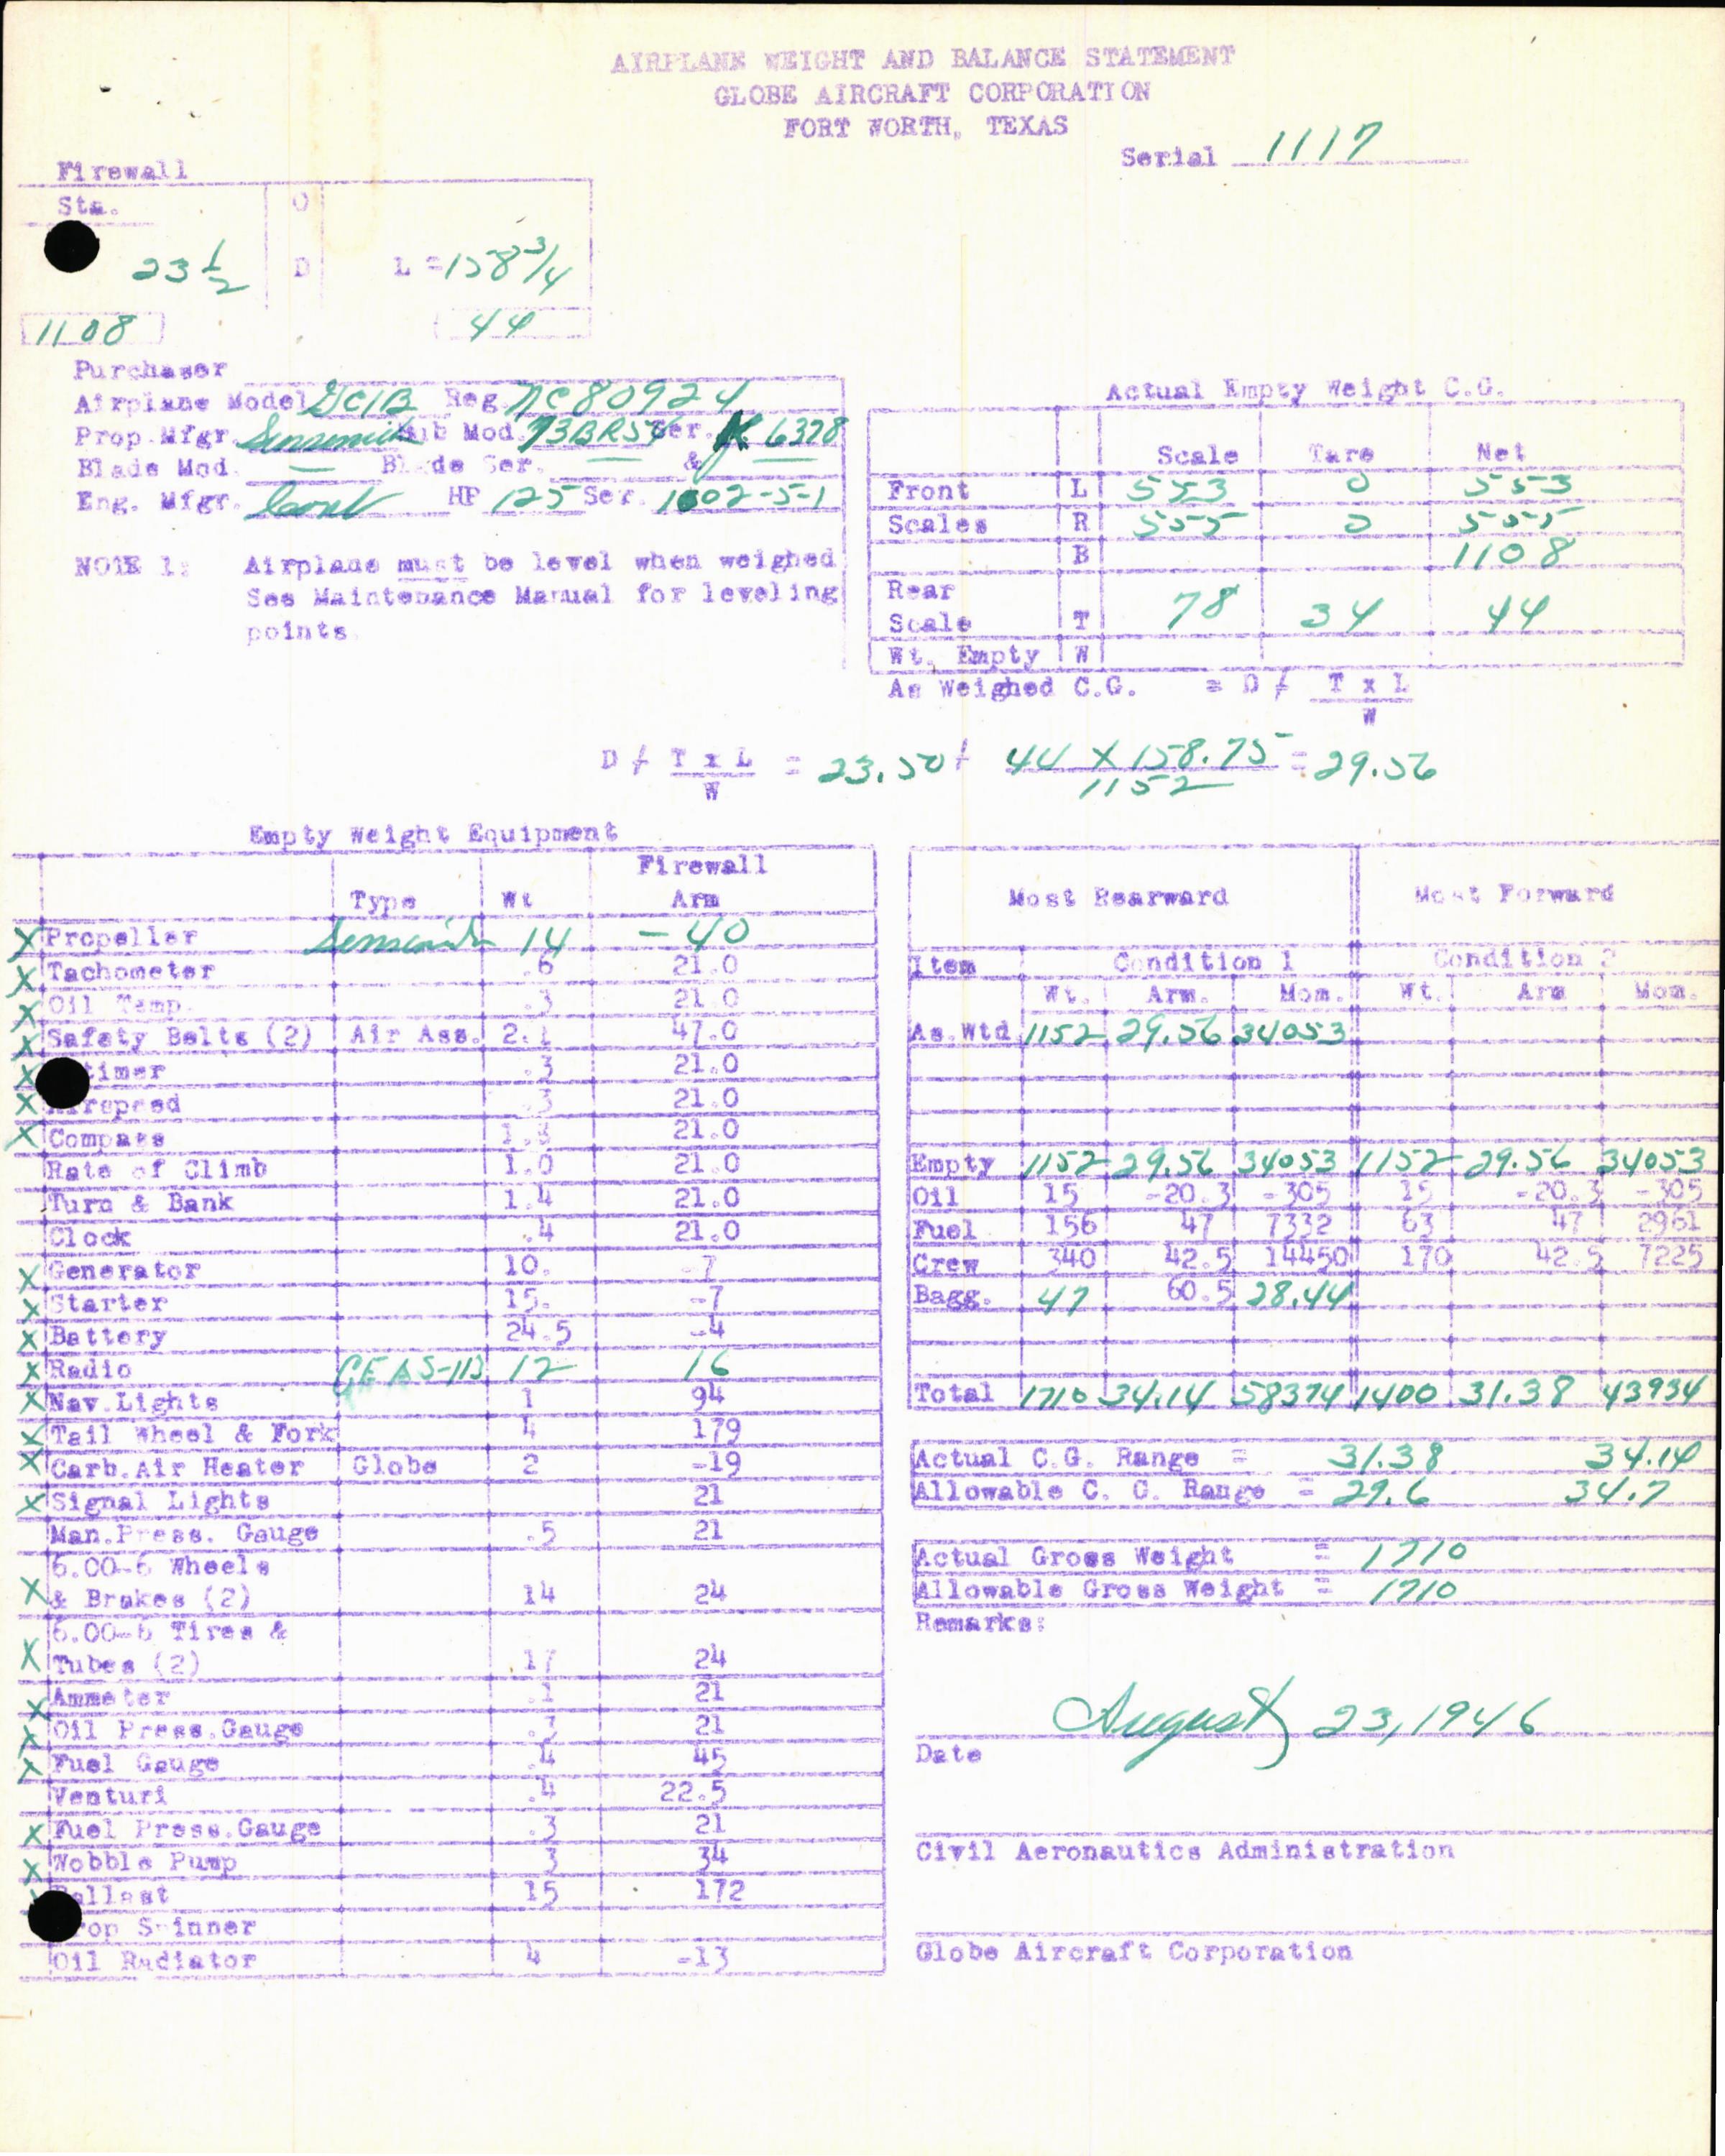 AIRPLANE WEIGHT AND BALANCE STATEMENT
GLOBE AIRCRAFT CORPORATION
FORT WORTH, TEXAS
Serial 1117
Firewall
Sta. O
23 1/2 D L = 158 3/4
1108 44
Purchaser
Airplane Model GC1B Reg. NC80924
Prop. Mfgr. Sensenich Hub Mod. 73BR57 Ser. 6378
Blade Mod. — Blade Ser. — & —
Eng. Mfgr. Cont HP 125 Ser. 1002-5-1
NOTE 1: Airplane must be level when weighed
See Maintenance Manual for leveling
points.
Actual Empty Weight C.G.
Scale Tare Net
Front L 553 0 553
Scales R 555 0 555
B 1108
Rear
Scale T 78 34 44
Wt. Empty W
As Weighed C.G. = D ≠ T x L
W
D ≠ T x L = 23.50 + 44 X 158.75 = 29.56
W 1152
Empty Weight Equipment
Firewall
Type Wt Arm
X Propeller Sensenich 14 -40
X Tachometer .6 21.0
X Oil Temp. .3 21.0
X Safety Belts (2) Air Ass. 2.1 47.0
X timer .3 21.0
X Airspeed .3 21.0
X Compass 21.0
Rate of Climb 1.0 21.0
Turn & Bank 1.4 21.0
Clock .4 21.0
X Generator 10. -7
X Starter 15. -7
X Battery 24.5 -4
X Radio GE AS-11B 12 16
X Nav. Lights 1 94
X Tail Wheel & Fork 4 179
X Carb. Air Heater Globe 2 -19
X Signal Lights 21
Man. Press. Gauge .5 21
6.00-6 Wheels
X & Brakes (2) 14 24
6.00-6 Tires &
X Tubes (2) 17 24
X Ammeter .1 21
X Oil Press. Gauge 21
X Fuel Gauge .4 45
Venturi .4 22.5
X Fuel Press. Gauge .3 21
X Wobble Pump 3 34
Ballast 15 172
Prop Spinner
Oil Radiator 4 -13
Most Rearward Most Forward
Item Condition 1 Condition 2
Wt. Arm. Mom. Wt. Arm Mom.
As. Wtd 1152 29.56 34053
Empty 1152 29.56 34053 1152 29.56 34053
Oil 15 -20.3 -305 15 -20.3 -305
Fuel 156 47 7332 63 47 2961
Crew 340 42.5 14450 170 42.5 7225
Bagg. 47 60.5 28.44
Total 1710 34.14 58374 1400 31.38 43934
Actual C.G. Range = 31.38 34.14
Allowable C. G. Range = 29.6 34.7
Actual Gross Weight = 1710
Allowable Gross Weight = 1710
Remarks:
August 23, 1946
Date
Civil Aeronautics Administration
Globe Aircraft Corporation